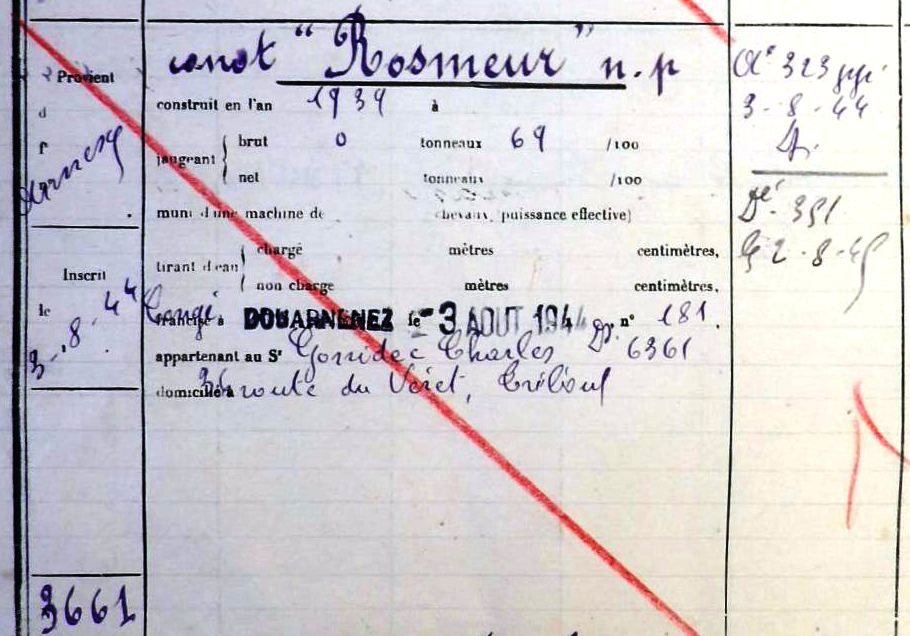 Provient
d
f
Inscrit
le 3-8-44
3661
canot "Rosmeur" n.p
construit en l'an 1939 à
jaugeant { brut 0 tonneaux 69 /100
net tonneaux /100
muni d'une machine de chevaux, puissance effective)
tirant d'eau { chargé mètres centimètres,
non chargé mètres centimètres,
Congé francisé à DOUARNENEZ le -3 AOUT 1944 Dz n° 181.
appartenant au Sr Gorridec Charles 6361
domicilié à 36 route du Véret, Tréboul
323
3-8-44
Dz.
351
2-8-45